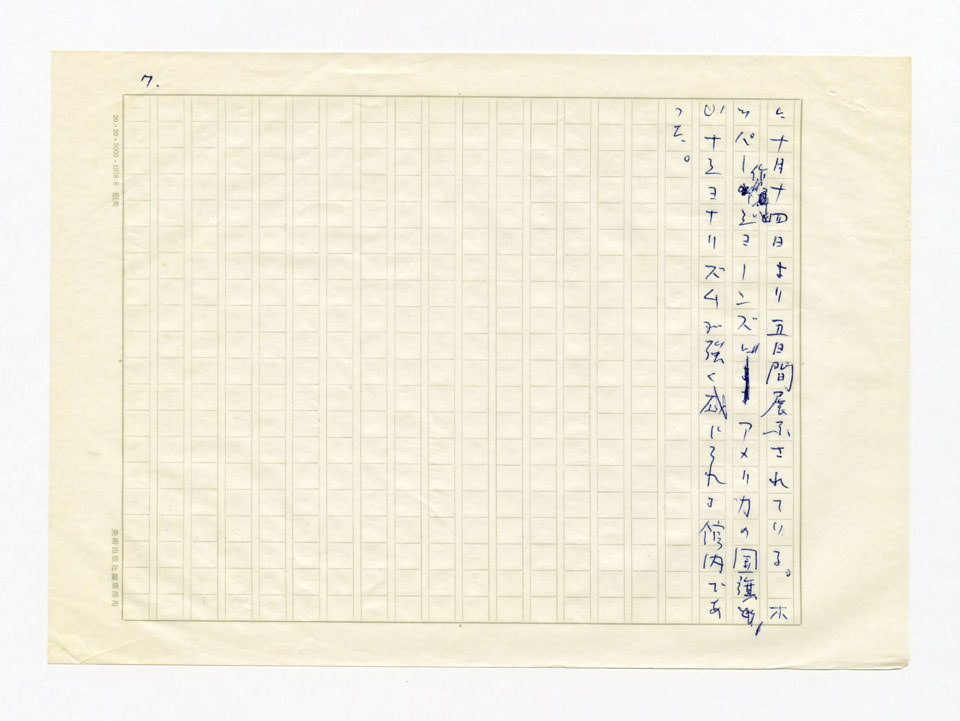 7.
十月十四日より五日間展示されている。ホ
ッパー ジョーンズ アメリカの国旗
ナショナリズムが強く感じられる館内であ
った。
美術出版社編集部用